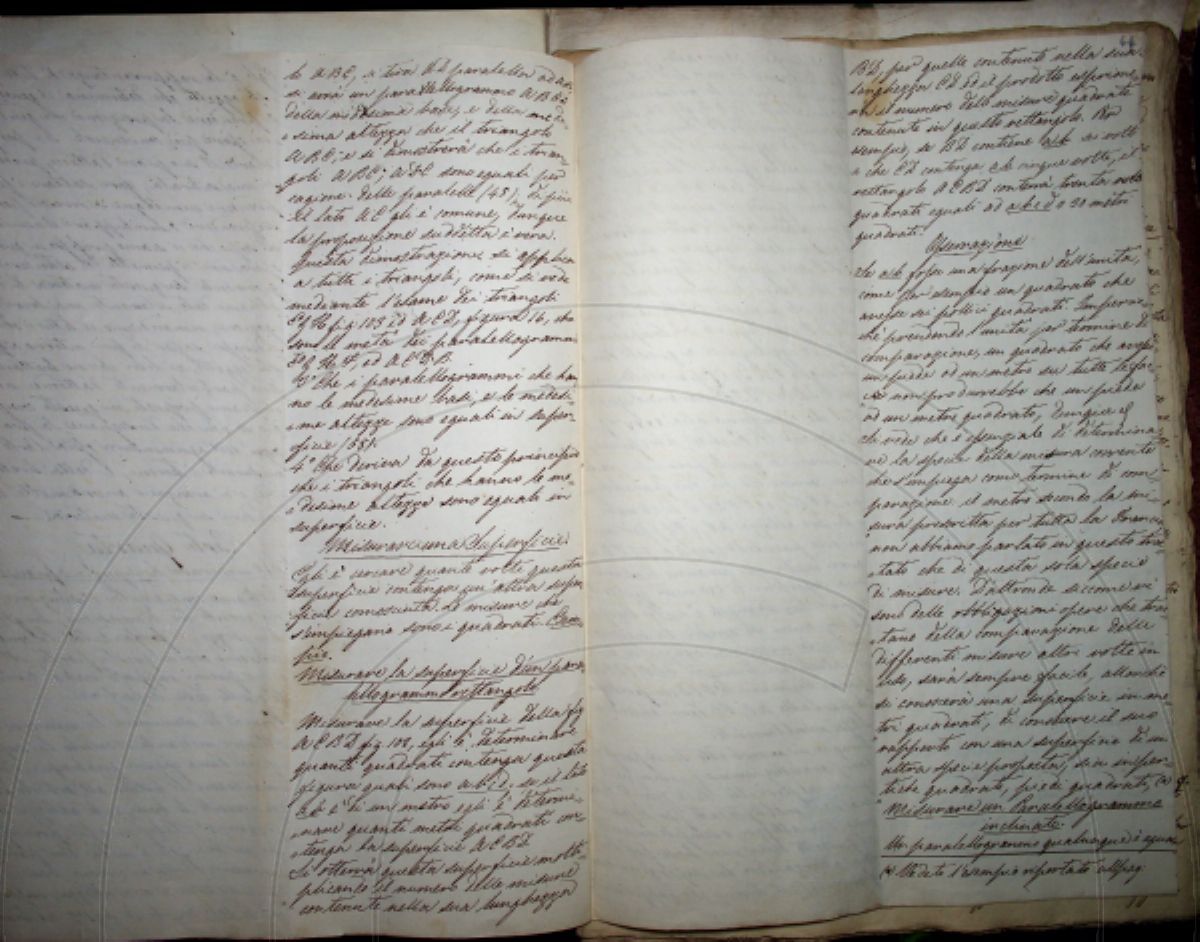 to ABC, si tira AD paralella ad BC,
si avrà un paralellogrammo ABCD
della medesima base, e della mede=
sima altezza che il triangolo
ABC; e si dimostrerà che i trian=
goli ABC; ADC sono eguali per
cagione delle paralelle (45). Di più
il lato AC gli è comune, dunque
la proposizione suddetta è vera.
Questa dimostrazione si applica
a tutti i triangoli, come si vede
mediante l'esame dei triangoli
fig 103 ed ACD, figura 16, che
sono la metà dei paralellogrammi
ed ACDB.
3° Che i paralellogrammi che han=
no le medesime basi, e le medesi=
me altezze sono eguali in super=
ficie (68).
4° Che deriva da questo principio
che i triangoli che hanno le me=
desime altezze sono eguali in
superficie.
Misurare una Superficie
Egli è cercare quante volte questa
superficie contenga un'altra super
ficie conosciuta. Le misure che
s'impiegano sono i quadrati.
Misurare la superficie d'un para
lellogrammo rettangolo
Misurare la superficie della fig
ACBD fig 102, egli è determinare
quanti quadrati contenga questa
figura quali sono abcd, se il lato
ab è di un metro egli è determi=
nare quanti metri quadrati con
tenga la superficie ACBD
Si otterrà questa superficie molti=
plicando il numero delle misure
contenute nella sua lunghezza
44
BD, per quelle contenute nella sua
larghezza CD ed il prodotto esprime
rà il numero delle misure quadrate
contenute in questo rettangolo. Per
esempio, se BD contiene ab sei volte
e che CD contenga ab cinque volte, il
rettangolo ACBD conterrà trenta
quadrati eguali ad abcd o 30 metri
quadrati.
Osservazione
Se ab fosse una frazione dell'unità,
come per esempio un quadrato che
avesse sei pollici quadrati. Imperoc
chè prendendo l'unità per termine di
comparazione, un quadrato che avesse
un piede od un metro su tutte le fac
cie non produrrebbe che un piede
od un metro quadrato, dunque
si vede che è essenziale di determina
re la specie della misura corrente
che s'impiega come termine di com
parazione il metro secondo la mi
sura prescritta per tutta la Francia
non abbiamo parlato in questo trat
tato che di questa sola specie
di misure. D'altronde siccome vi
sono delle obbligazioni opere che trat
tano della comparazione delle
differenti misure altre volte in
uso, sarà sempre facile, allorchè
si conoscerà una superficie in me
tri quadrati, di conoscere il suo
rapporto con una superficie di un
altra specie proposta, sia in
tese quadrate, piedi quadrati, (a)
Misurare un Paralellogrammo
inclinato.
Un paralellogrammo qualunque è eguale
(a) Vedete l'esempio riportato alla pag